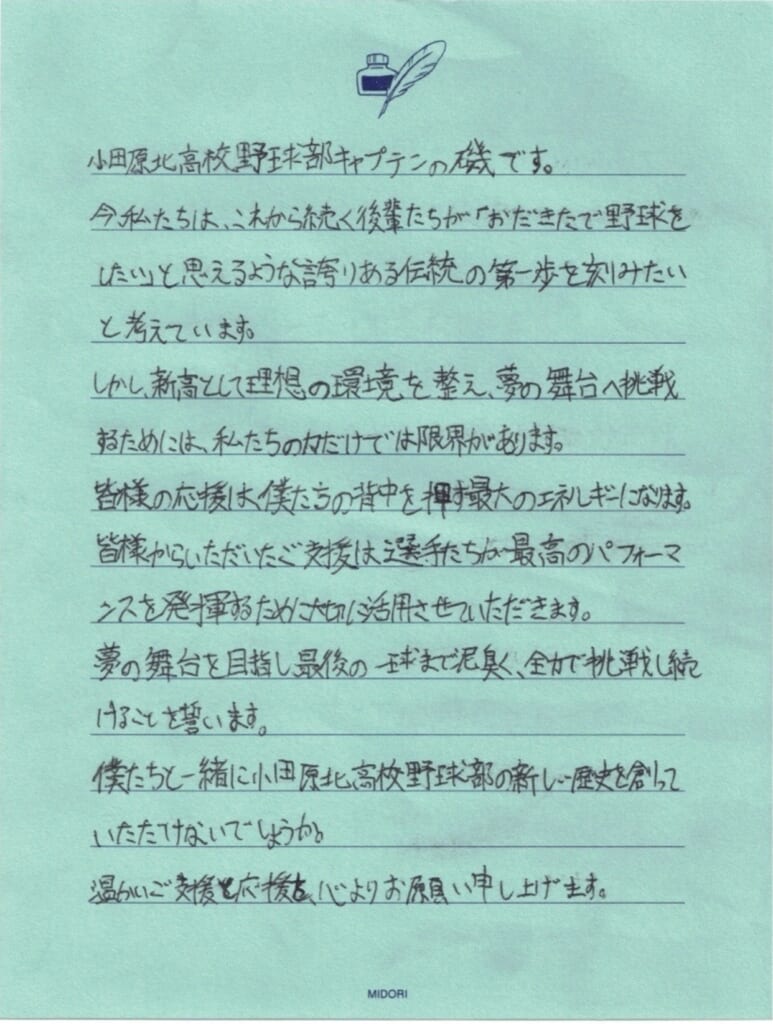 小田原北高校野球部キャプテンの磯です。
今、私たちは、これから続く後輩たちが「おだきたで野球を
したい」と思えるような誇りある伝統の第一歩を刻みたい
と考えています。
しかし、新高として理想の環境を整え、夢の舞台へ挑戦
するためには、私たちの力だけでは限界があります。
皆様の応援は、僕たちの背中を押す最大のエネルギーになります。
皆様からいただいたご支援は、選手たちが最高のパフォーマ
ンスを発揮するために大切に活用させていただきます。
夢の舞台を目指し最後の一球まで泥臭く、全力で挑戦し続
けることを誓います。
僕たちと一緒に小田原北高校野球部の新しい歴史を創って
いただけないでしょうか。
温かいご支援と応援を、心よりお願い申し上げます。
MIDORI